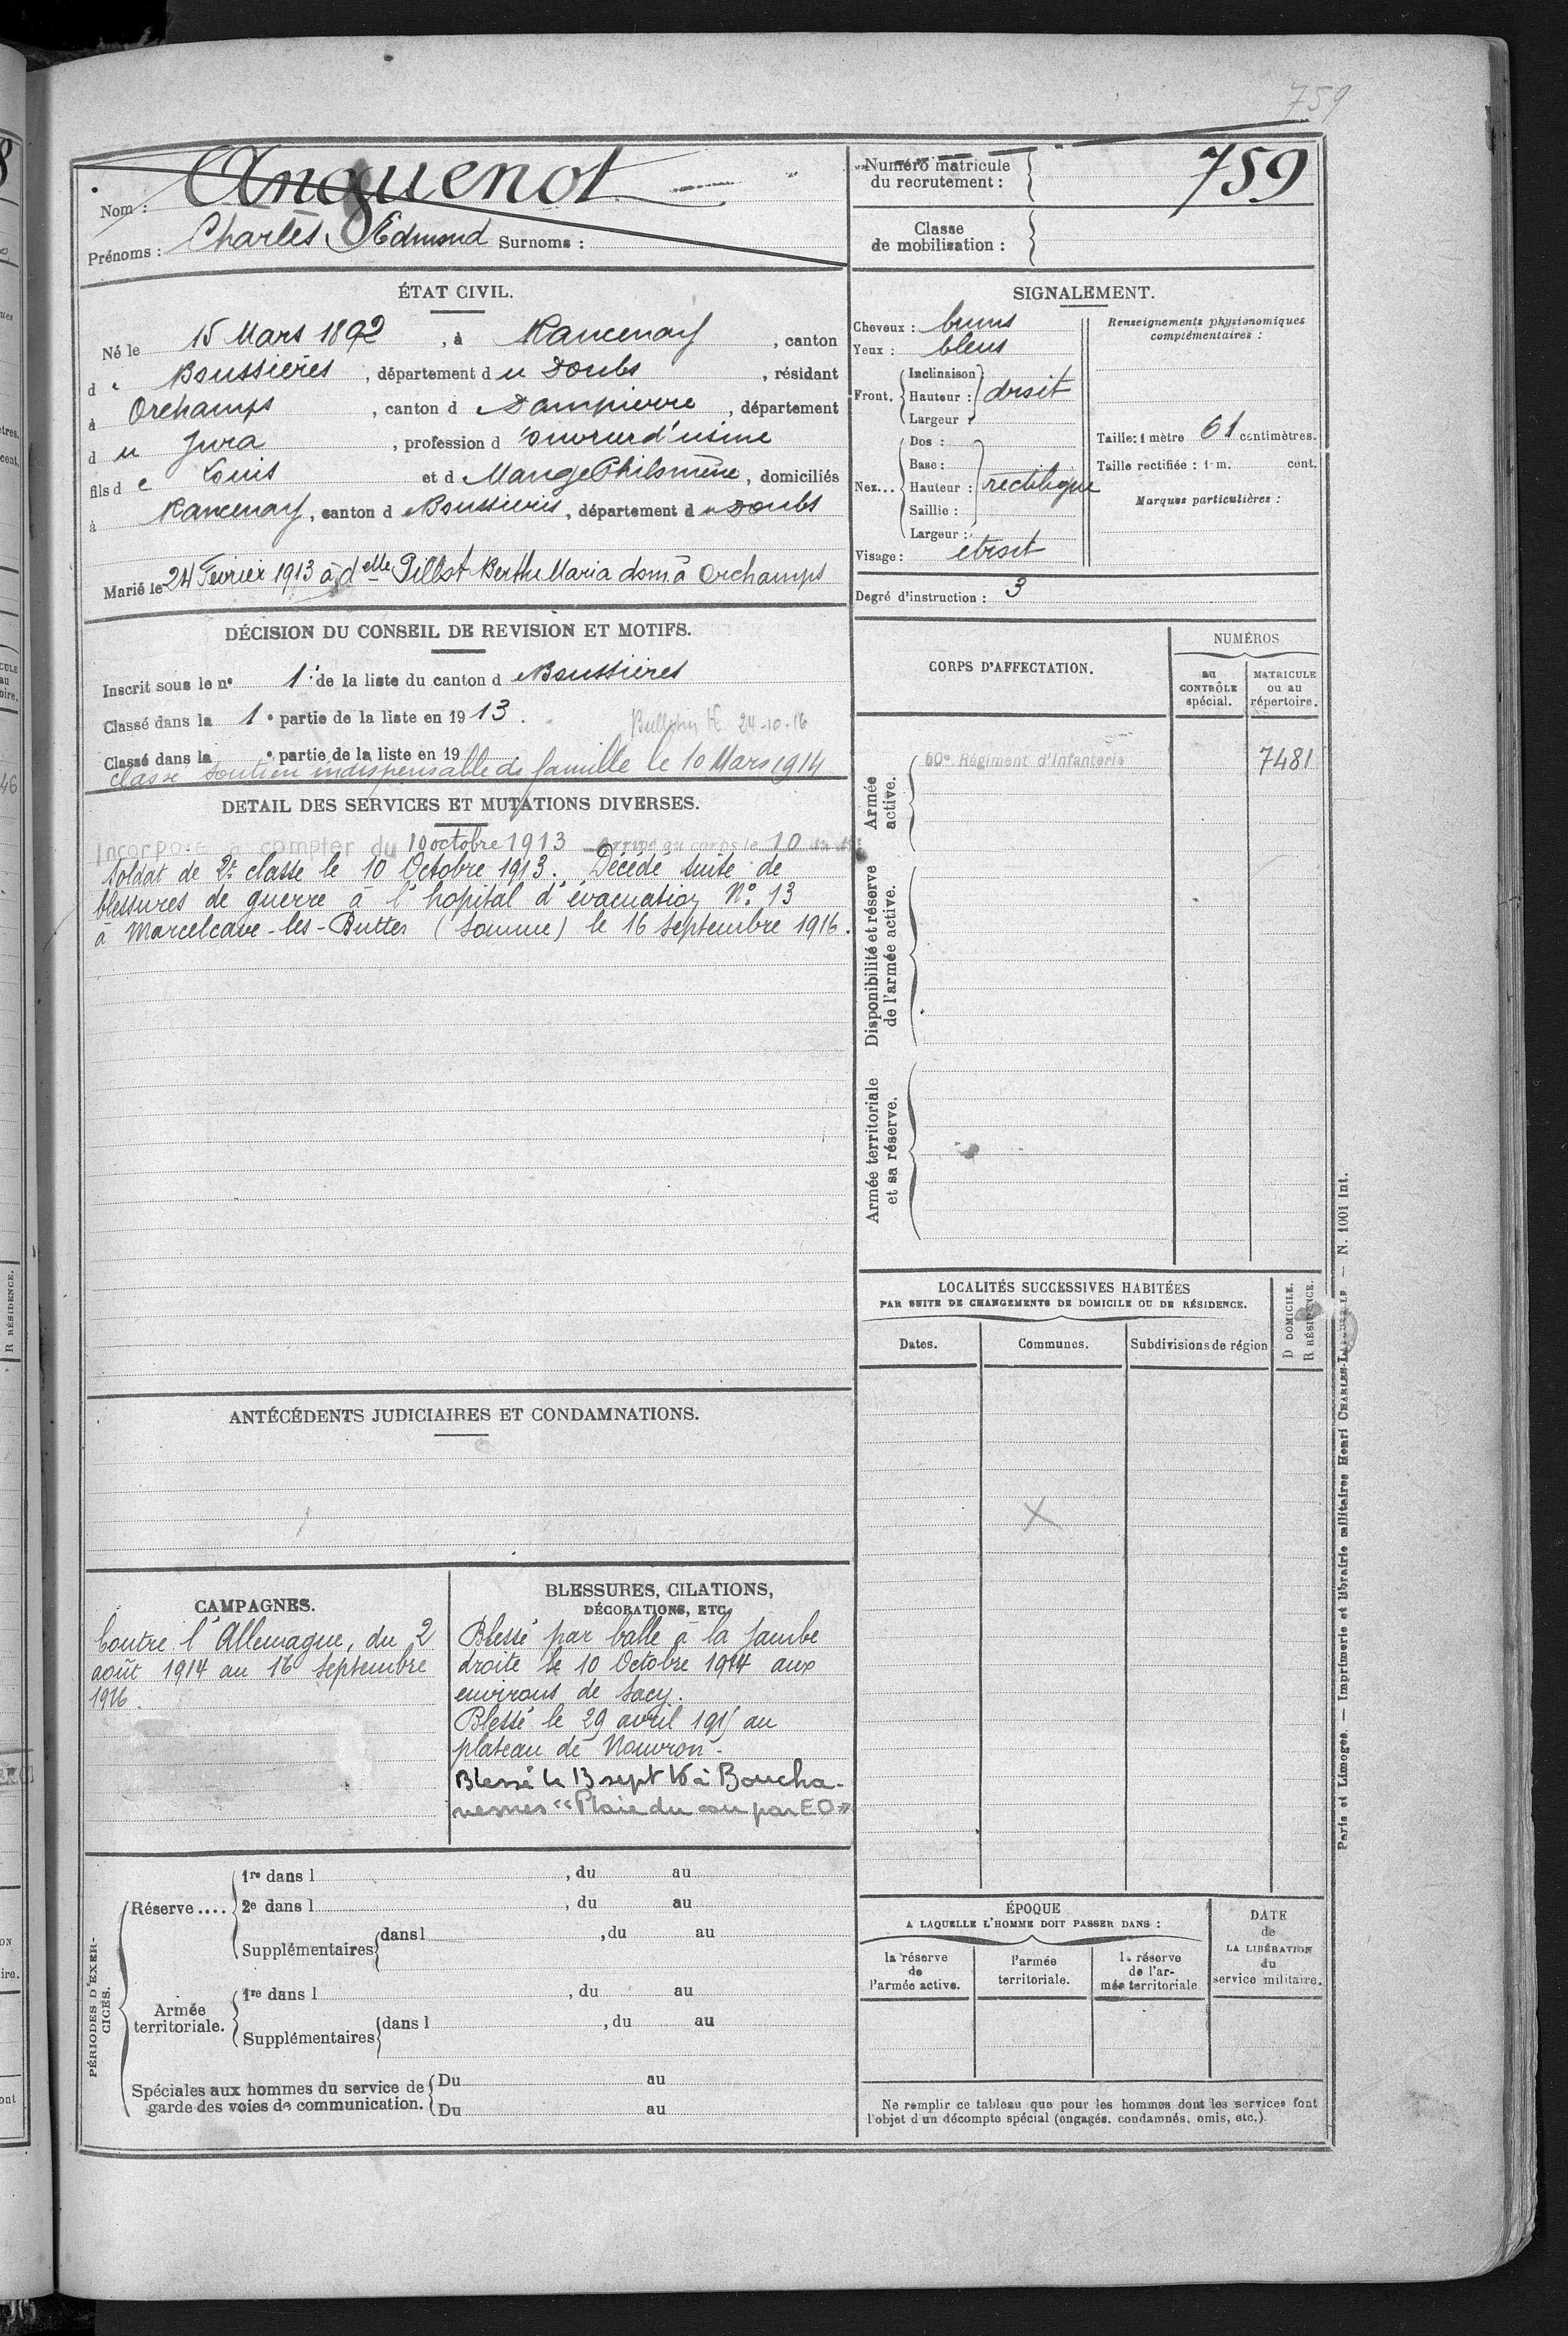 759
Nom : Anguenot
Prénoms : Charles Edmond Surnoms :
Numéro matricule du recrutement : 759
Classe de mobilisation :
ÉTAT CIVIL.
Né le 15 Mars 1892, à Rancenay, canton
de Boussières, département du Doubs, résidant
à Orchamps, canton d Dampierre, département
du Jura, profession d'ouvrier d'usine
fils de Louis et d Mange Philomène, domiciliés
à Rancenay, canton d Boussières, département du Doubs
Marié le 24 Février 1913 à delle Pillot Berthe Maria dom. à Orchamps
SIGNALEMENT.
Cheveux : bruns
Yeux : bleus
Front. Inclinaison : Hauteur : Largeur : droit
Nez... Dos : Base : Hauteur : Saillie : Largeur : rectiligne
Visage : étroit
Renseignements physionomiques complémentaires :
Taille : 1 mètre 61 centimètres.
Taille rectifiée : 1 m. cent.
Marques particulières :
Degré d'instruction : 3
DÉCISION DU CONSEIL DE REVISION ET MOTIFS.
Inscrit sous le n° 1 de la liste du canton d Boussières
Classé dans la 1e partie de la liste en 1913.
Bulletin 24-10-16
Classé dans la e partie de la liste en 19
Classé soutien indispensable de famille le 10 Mars 1914
DÉTAIL DES SERVICES ET MUTATIONS DIVERSES.
Incorporé à compter du 10 octobre 1913 arrivé au corps le 10
Soldat de 2e classe le 10 Octobre 1913. Décédé suite de
blessures de guerre à l'hopital d'évacuation N° 13
à Marcelcave-les-Buttes (Somme) le 16 Septembre 1916.
CORPS D'AFFECTATION.
NUMÉROS
au CONTRÔLE spécial.
MATRICULE ou au répertoire.
Armée active.
60e Régiment d'Infanterie 7481
Disponibilité et réserve de l'armée active.
Armée territoriale et sa réserve.
LOCALITÉS SUCCESSIVES HABITÉES
PAR SUITE DE CHANGEMENTS DE DOMICILE OU DE RÉSIDENCE.
Dates. Communes. Subdivisions de région
D DOMICILE.
R RÉSIDENCE.
X
ANTÉCÉDENTS JUDICIAIRES ET CONDAMNATIONS.
CAMPAGNES.
Contre l'Allemagne, du 2
août 1914 au 16 Septembre
1916.
BLESSURES, CITATIONS,
DÉCORATIONS, ETC.
Blessé par balle à la jambe
droite le 10 Octobre 1914 aux
environs de Sacy.
Blessé le 29 avril 1915 au
plateau de Nouvron.
Blessé le 13 sept 16 à Boucha-
vesnes "Plaie du cou par EO"
PÉRIODES D'EXERCICES.
Réserve.... 1re dans l , du au
2e dans l , du au
Supplémentaires dans l , du au
Armée territoriale. 1re dans l , du au
Supplémentaires dans l , du au
Spéciales aux hommes du service de garde des voies de communication. Du au
Du au
ÉPOQUE
A LAQUELLE L'HOMME DOIT PASSER DANS :
la réserve de l'armée active.
l'armée territoriale.
la réserve de l'armée territoriale
DATE de LA LIBÉRATION du service militaire.
Ne remplir ce tableau que pour les hommes dont les services font
l'objet d'un décompte spécial (engagés, condamnés, omis, etc.).
Paris et Limoges. — Imprimerie et librairie militaires Henri CHARLES-LAVAUZELLE — N. 1001 int.